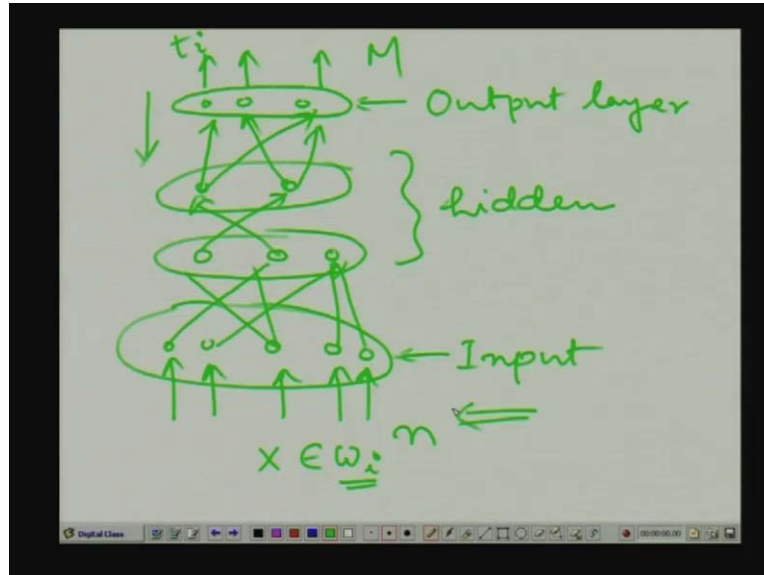 t_i M
Output layer
hidden
Input
X ∈ ω_i n
Digital Class
00:00:00.00